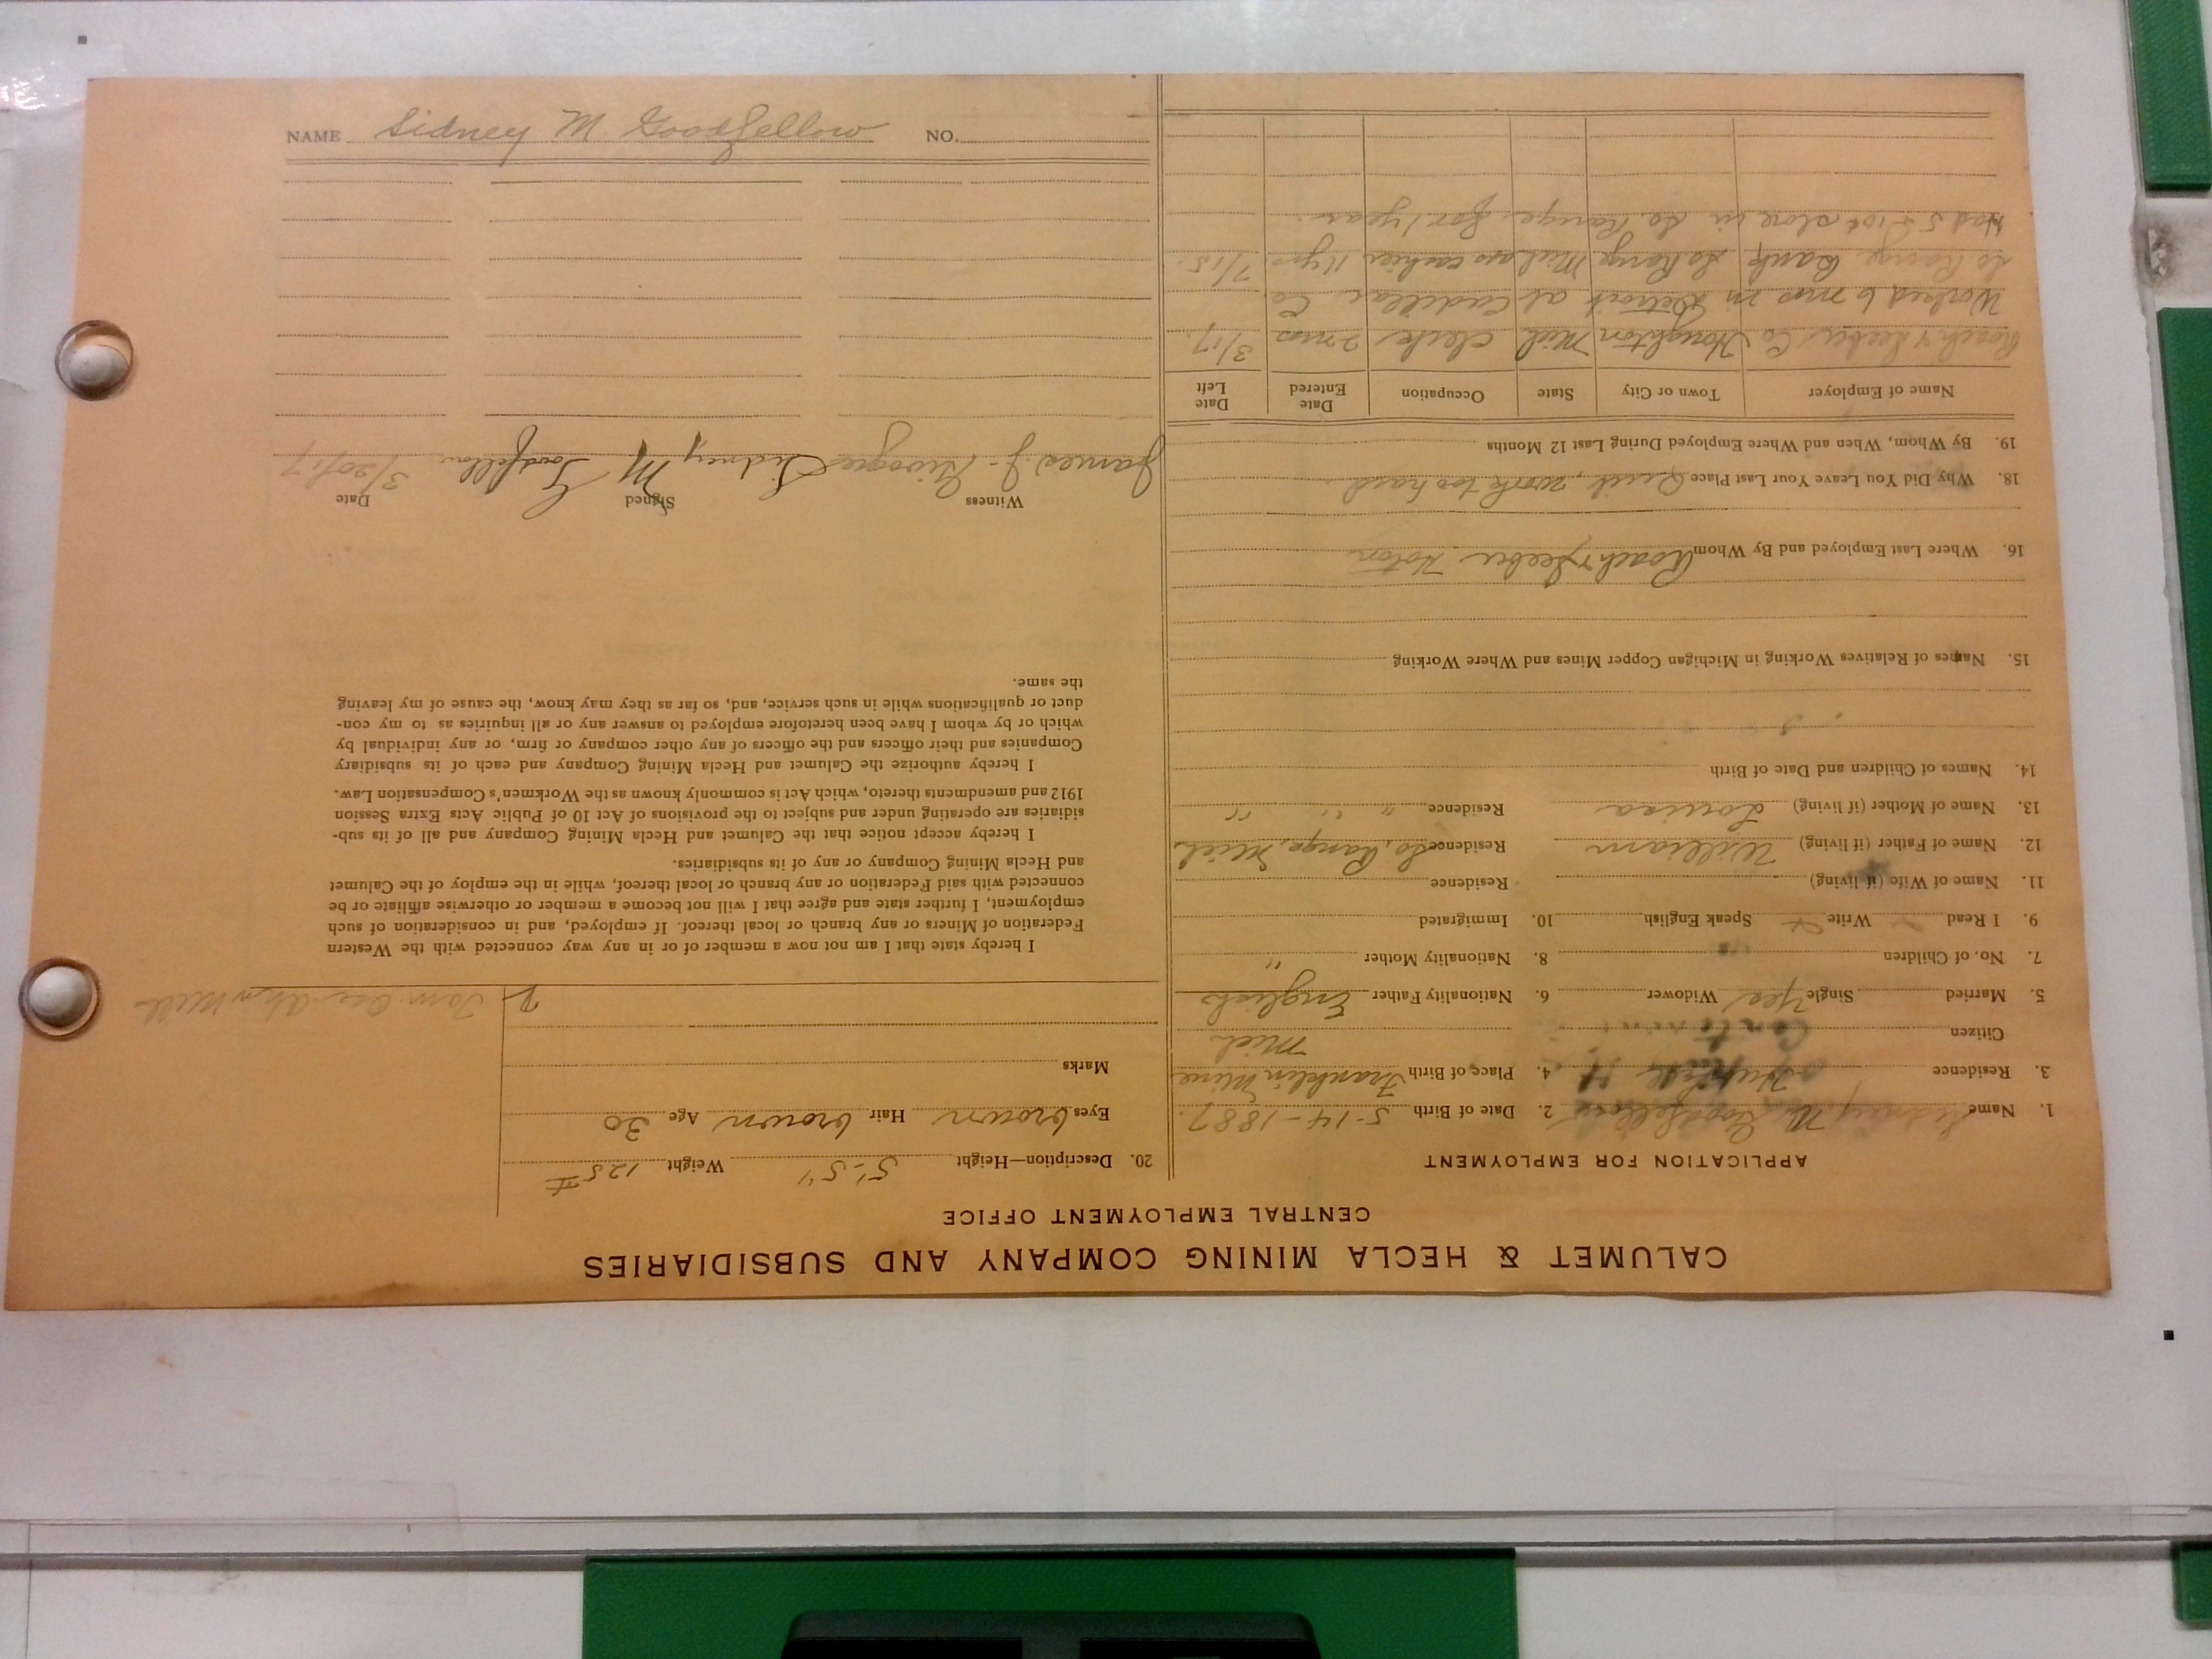 CALUMET & HECLA MINING COMPANY AND SUBSIDIARIES
CENTRAL EMPLOYMENT OFFICE
APPLICATION FOR EMPLOYMENT
1. Name Sidney M Goodfellow 2. Date of Birth 5-14-1887.
3. Residence 4. Place of Birth Franklin Mine
Mich
Citizen
5. Married Single Yes Widower 6. Nationality Father English
7. No. of Children 8. Nationality Mother "
9. I Read Write Speak English 10. Immigrated
11. Name of Wife (if living) Residence
12. Name of Father (if living) William Residence So. Range, Mich
13. Name of Mother (if living) Louisa Residence " " "
14. Names of Children and Date of Birth
15. Names of Relatives Working in Michigan Copper Mines and Where Working
16. Where Last Employed and By Whom Roach & Seeber Hoton
18. Why Did You Leave Your Last Place Quit, work too hard.
19. By Whom, When and Where Employed During Last 12 Months
Name of Employer Town or City State Occupation Date Entered Date Left
Roach & Seeber Co Houghton Mich Clerk 2 mos 3/17.
Worked 6 mos in Detroit at Cadillac Co.
So Range Bank So Range Mich as cashier 11 yrs. 7/15.
Had 5 & 10¢ store in So. Range for 1 year.
20. Description—Height 5'-5" Weight 125#
Eyes brown Hair brown Age 30
Marks
I hereby state that I am not now a member of or in any way connected with the Western
Federation of Miners or any branch or local thereof. If employed, and in consideration of such
employment, I further state and agree that I will not become a member or otherwise affiliate or be
connected with said Federation or any branch or local thereof, while in the employ of the Calumet
and Hecla Mining Company or any of its subsidiaries.
I hereby accept notice that the Calumet and Hecla Mining Company and all of its sub-
sidiaries are operating under and subject to the provisions of Act 10 of Public Acts Extra Session
1912 and amendments thereto, which Act is commonly known as the Workmen's Compensation Law.
I hereby authorize the Calumet and Hecla Mining Company and each of its subsidiary
Companies and their officers and the officers of any other company or firm, or any individual by
which or by whom I have been heretofore employed to answer any or all inquiries as to my con-
duct or qualifications while in such service, and, so far as they may know, the cause of my leaving
the same.
Witness Signed Date
James J. Sidney M Goodfellow 3/20/17
NAME Sidney M Goodfellow NO.